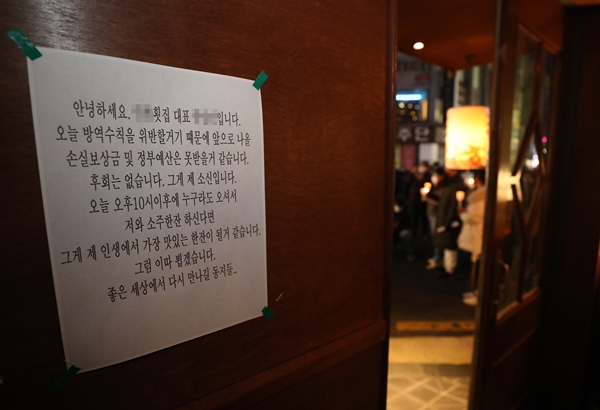 안녕하세요. 횟집 대표 입니다.
오늘 방역수칙을 위반할거기 때문에 앞으로 나올
손실보상금 및 정부예산은 못받을거 같습니다.
후회는 없습니다. 그게 제 소신입니다.
오늘 오후10시이후에 누구라도 오셔서
저와 소주한잔 하신다면
그게 제 인생에서 가장 맛있는 한잔이 될거 같습니다.
그럼 이따 뵙겠습니다.
좋은 세상에서 다시 만나길 동지들..